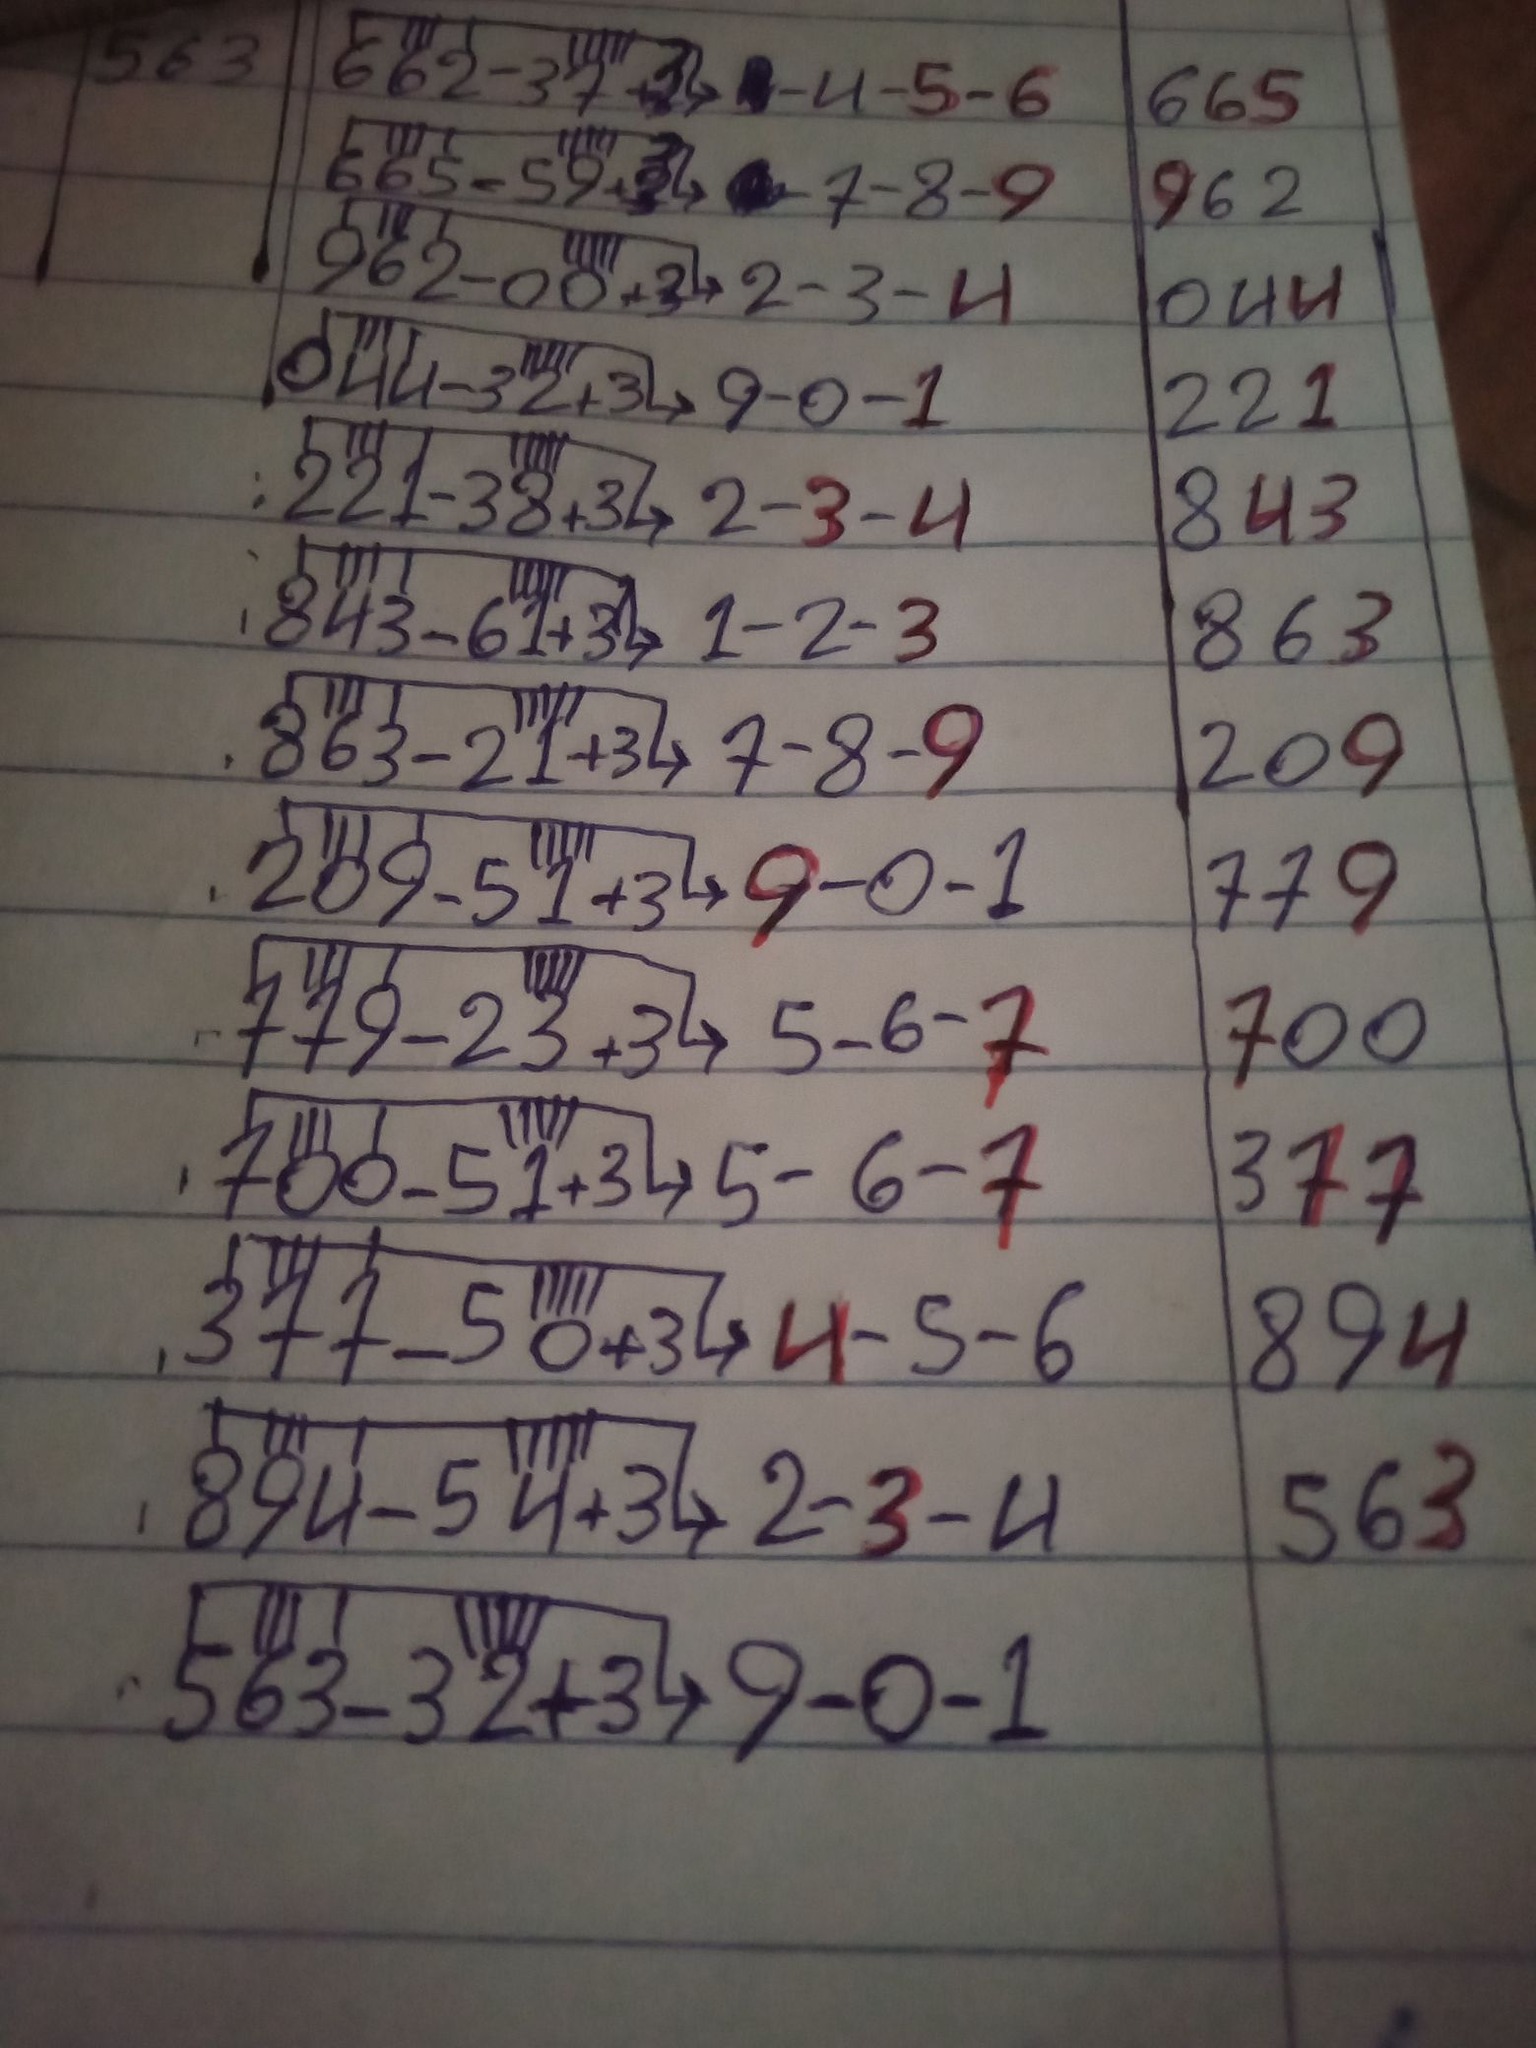 563 662-37+3 -4-5-6 665
665-59+3 -7-8-9 962
962-00+3 2-3-4 044
044-32+3 9-0-1 221
221-38+3 2-3-4 843
843-61+3 1-2-3 863
863-21+3 7-8-9 209
209-51+3 9-0-1 779
779-23+3 5-6-7 700
700-51+3 5-6-7 377
377-50+3 4-5-6 894
894-54+3 2-3-4 563
563-32+3 9-0-1